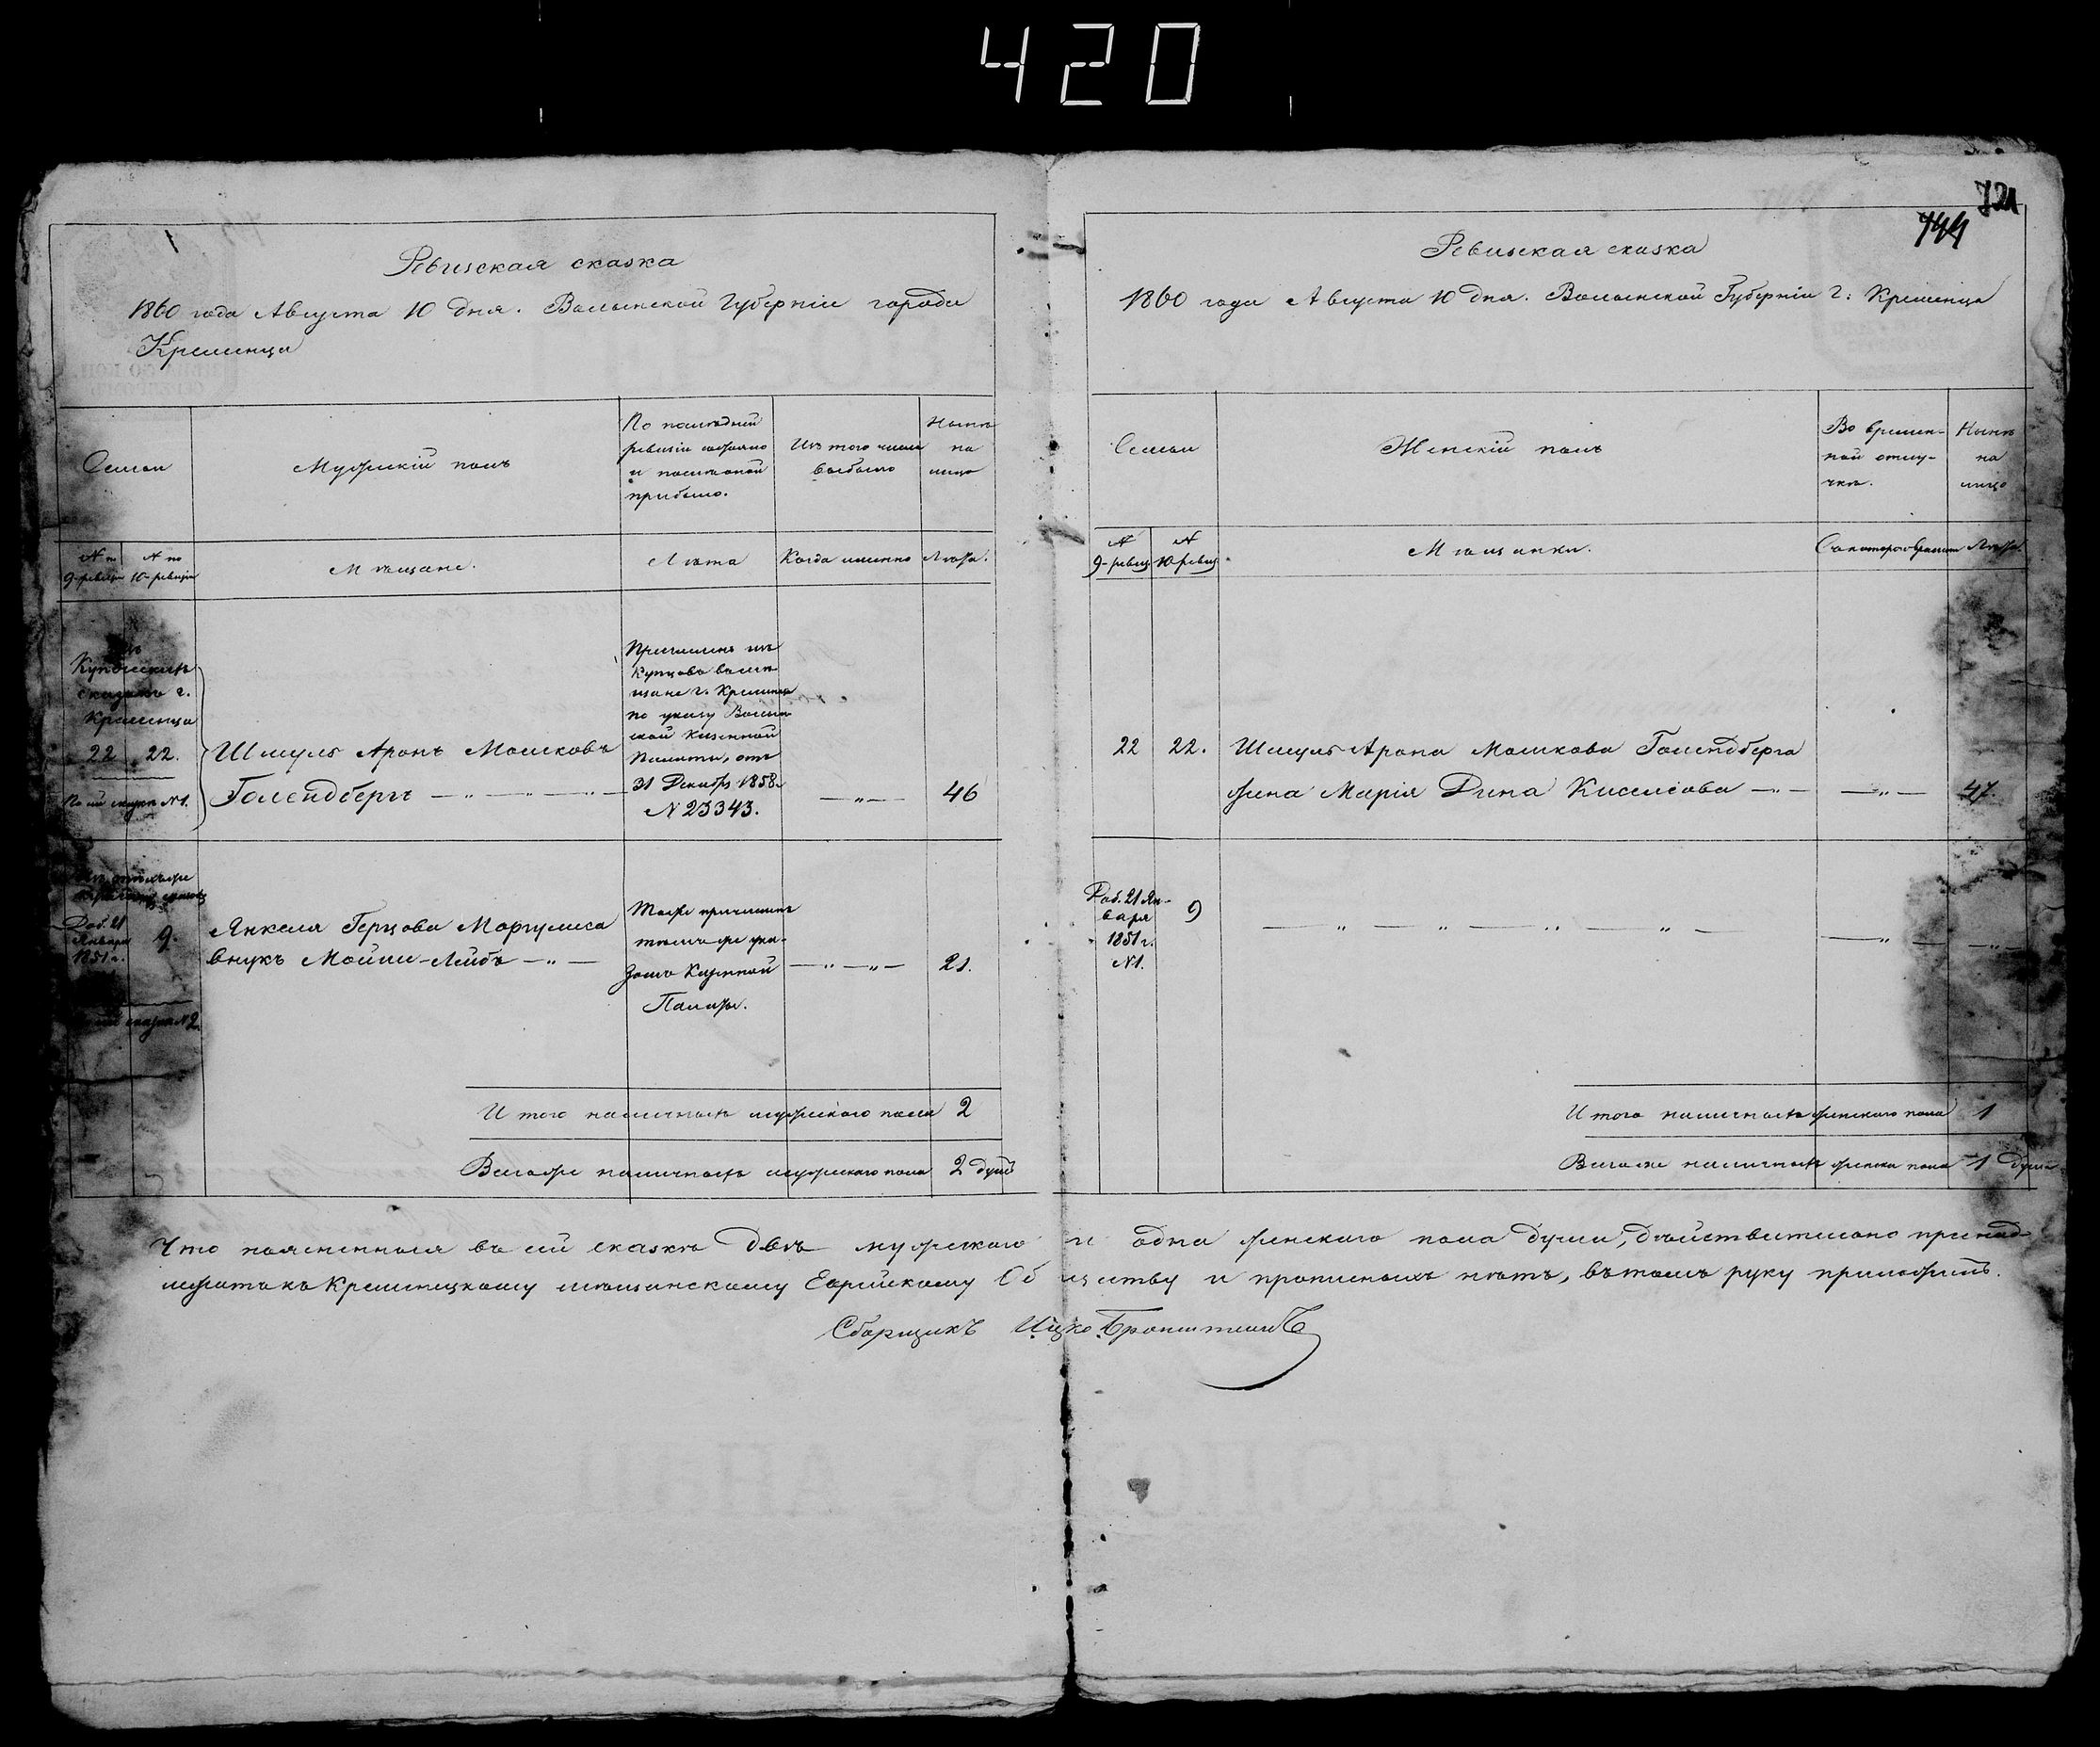 420
721
744
Ревизская сказка
1860 года Августа 10 дня. Волынской Губерніи города
Кременца
Семьи
Мужескій полъ
По последней
ревизіи состояло
и после оной
прибыло.
Изъ того числа
выбыло
Ныне
на
лицо
№ по
9-ревизіи
№ по
10-ревизіи
Мѣщане.
Лѣта
Когда именно
Лѣта.
Купеческихъ
сказокъ г.
Кременца
22
22.
По сей сказке №1.
Шмуль Аронъ Мошковъ
Голендбергъ
Причисленъ изъ
купцовъ въ мѣ-
щане г. Кременца
по указу Волын-
ской Казенной
Палаты, отъ
31 Декабр. 1858 г.
№ 23343.
46
Доб. 21
Января
1851 г.
9.
сказке №2.
Янкеля Герцова Маргулиса
внукъ Мойше-Лейбъ
Тоже причисленъ
Казенной
Палаты.
21.
Итого наличныхъ мужескаго пола 2
Всего же наличныхъ мужескаго пола 2 душъ
Ревизская сказка
1860 года Августа 10 дня. Волынской Губерніи г: Кременца
Семьи
Женскій полъ
Во времен-
ной отлу-
чкѣ.
Ныне
на
лицо
№
9-ревиз
№
10 ревиз.
Мѣщанки.
Съ котораго времени
Лѣта.
22
22.
Шмуль Арона Мошкова Голендберга
жена Марія Дина Киселіова
47
Доб. 21 Ян-
варя
1851 г.
№1.
9
Итого наличныхъ женскаго пола 1
Всего же наличныхъ женска пола 1 душа
Что поясненныя въ сей сказкѣ двѣ мужескаго и одна женскаго пола души, дѣйствительно принад-
лежатъ къ Кременецкому мѣщанскому Еврейскому Обществу и прописныхъ нѣтъ, въ томъ руку приложилъ.
Сборщикъ Ицко Бронштейнъ